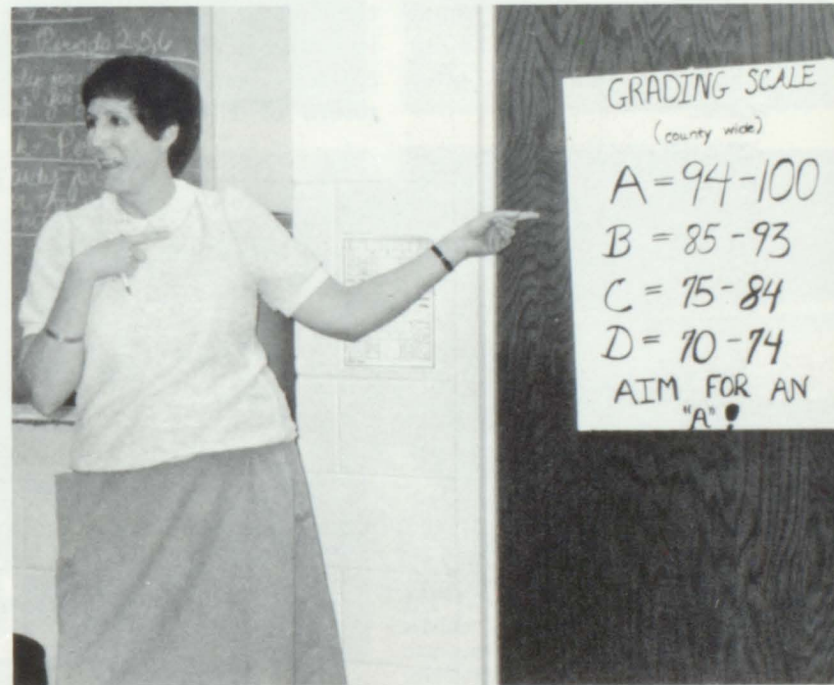 Periods 2,5,6
GRADING SCALE
(county wide)
A = 94-100
B = 85-93
C = 75-84
D = 70-74
AIM FOR AN
"A"!